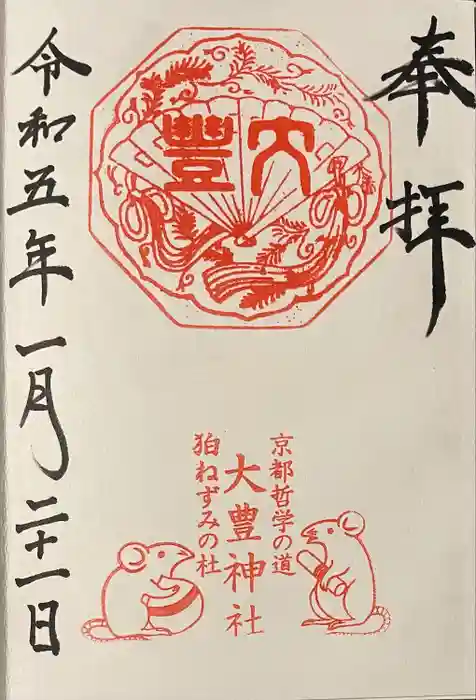 奉拝
大豐
京都哲学の道
大豊神社
狛ねずみの社
令和五年一月二十一日